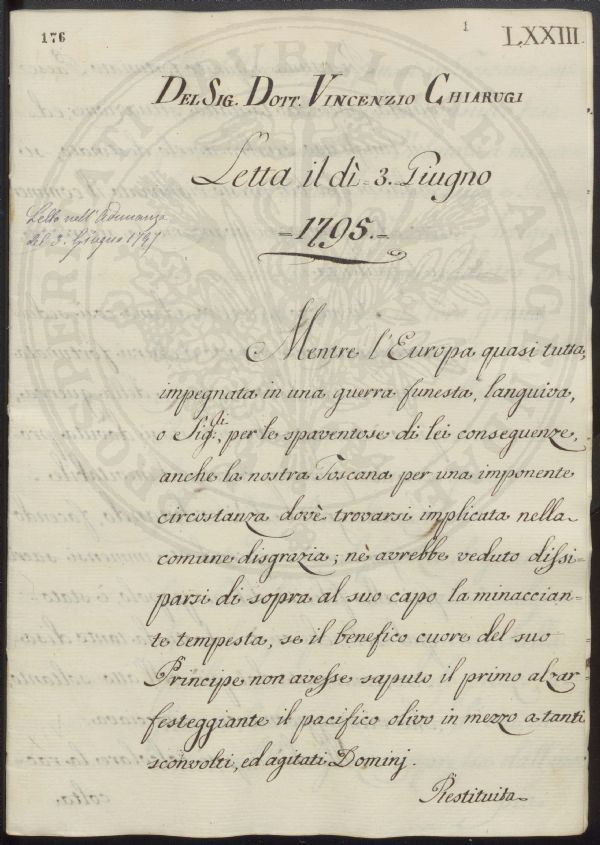 176
1
LXXIII.
DEL SIG. DOTT. VINCENZIO CHIARUGI
Letta il dì = 3. Giugno
= 1795. =
Letta nell'Adunanza
del 3. Giugno 1795
Mentre l'Europa quasi tutta,
impegnata in una guerra funesta, languiva,
o Sig.ri, per le spaventose di lei conseguenze,
anche la nostra Toscana per una imponente
circostanza dovè trovarsi implicata nella
comune disgrazia; nè avrebbe veduto dissi=
parsi di sopra al suo capo la minaccian=
te tempesta, se il benefico cuore del suo
Principe non avesse saputo il primo alzar
festeggiante il pacifico olivo in mezzo a tanti
sconvolti, ed agitati Dominj.
Restituita